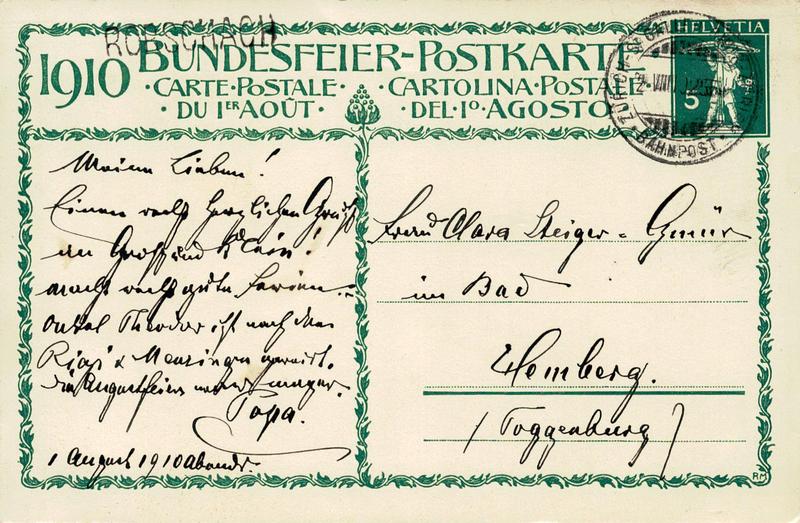 RORSCHACH
1910 BUNDESFEIER-POSTKARTE
·CARTE·POSTALE· ·CARTOLINA·POSTALE
·DU 1ER AOÛT· DEL·1º·AGOSTO
HELVETIA
5
BAHNPOST
Meine Lieben!
Einen recht herzlichen Gruß
an Groß und Klein!
macht recht gute Ferien.
Onkel Theodor ist nach dem
Rigi & Menzingen verreist.
die Augustfeier mager.
Papa.
1 August 1910 Abends.
Frau Clara Steiger-Gmür
im Bad
Hemberg.
(Toggenburg)
RM